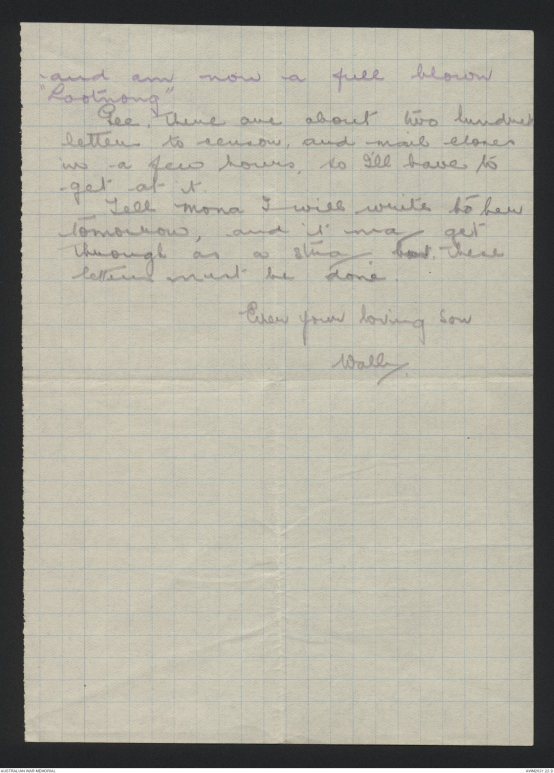 and am now a full blown
"Lootnong"
Gee, there are about two hundred
letters to censor, and mail closes
in a few hours, so I'll have to
get at it.
Tell Mona I will write to her
tomorrow, and it may get
through as a stray, but these
letters must be done.
Ever your loving son
Wally.
AUSTRALIAN WAR MEMORIAL